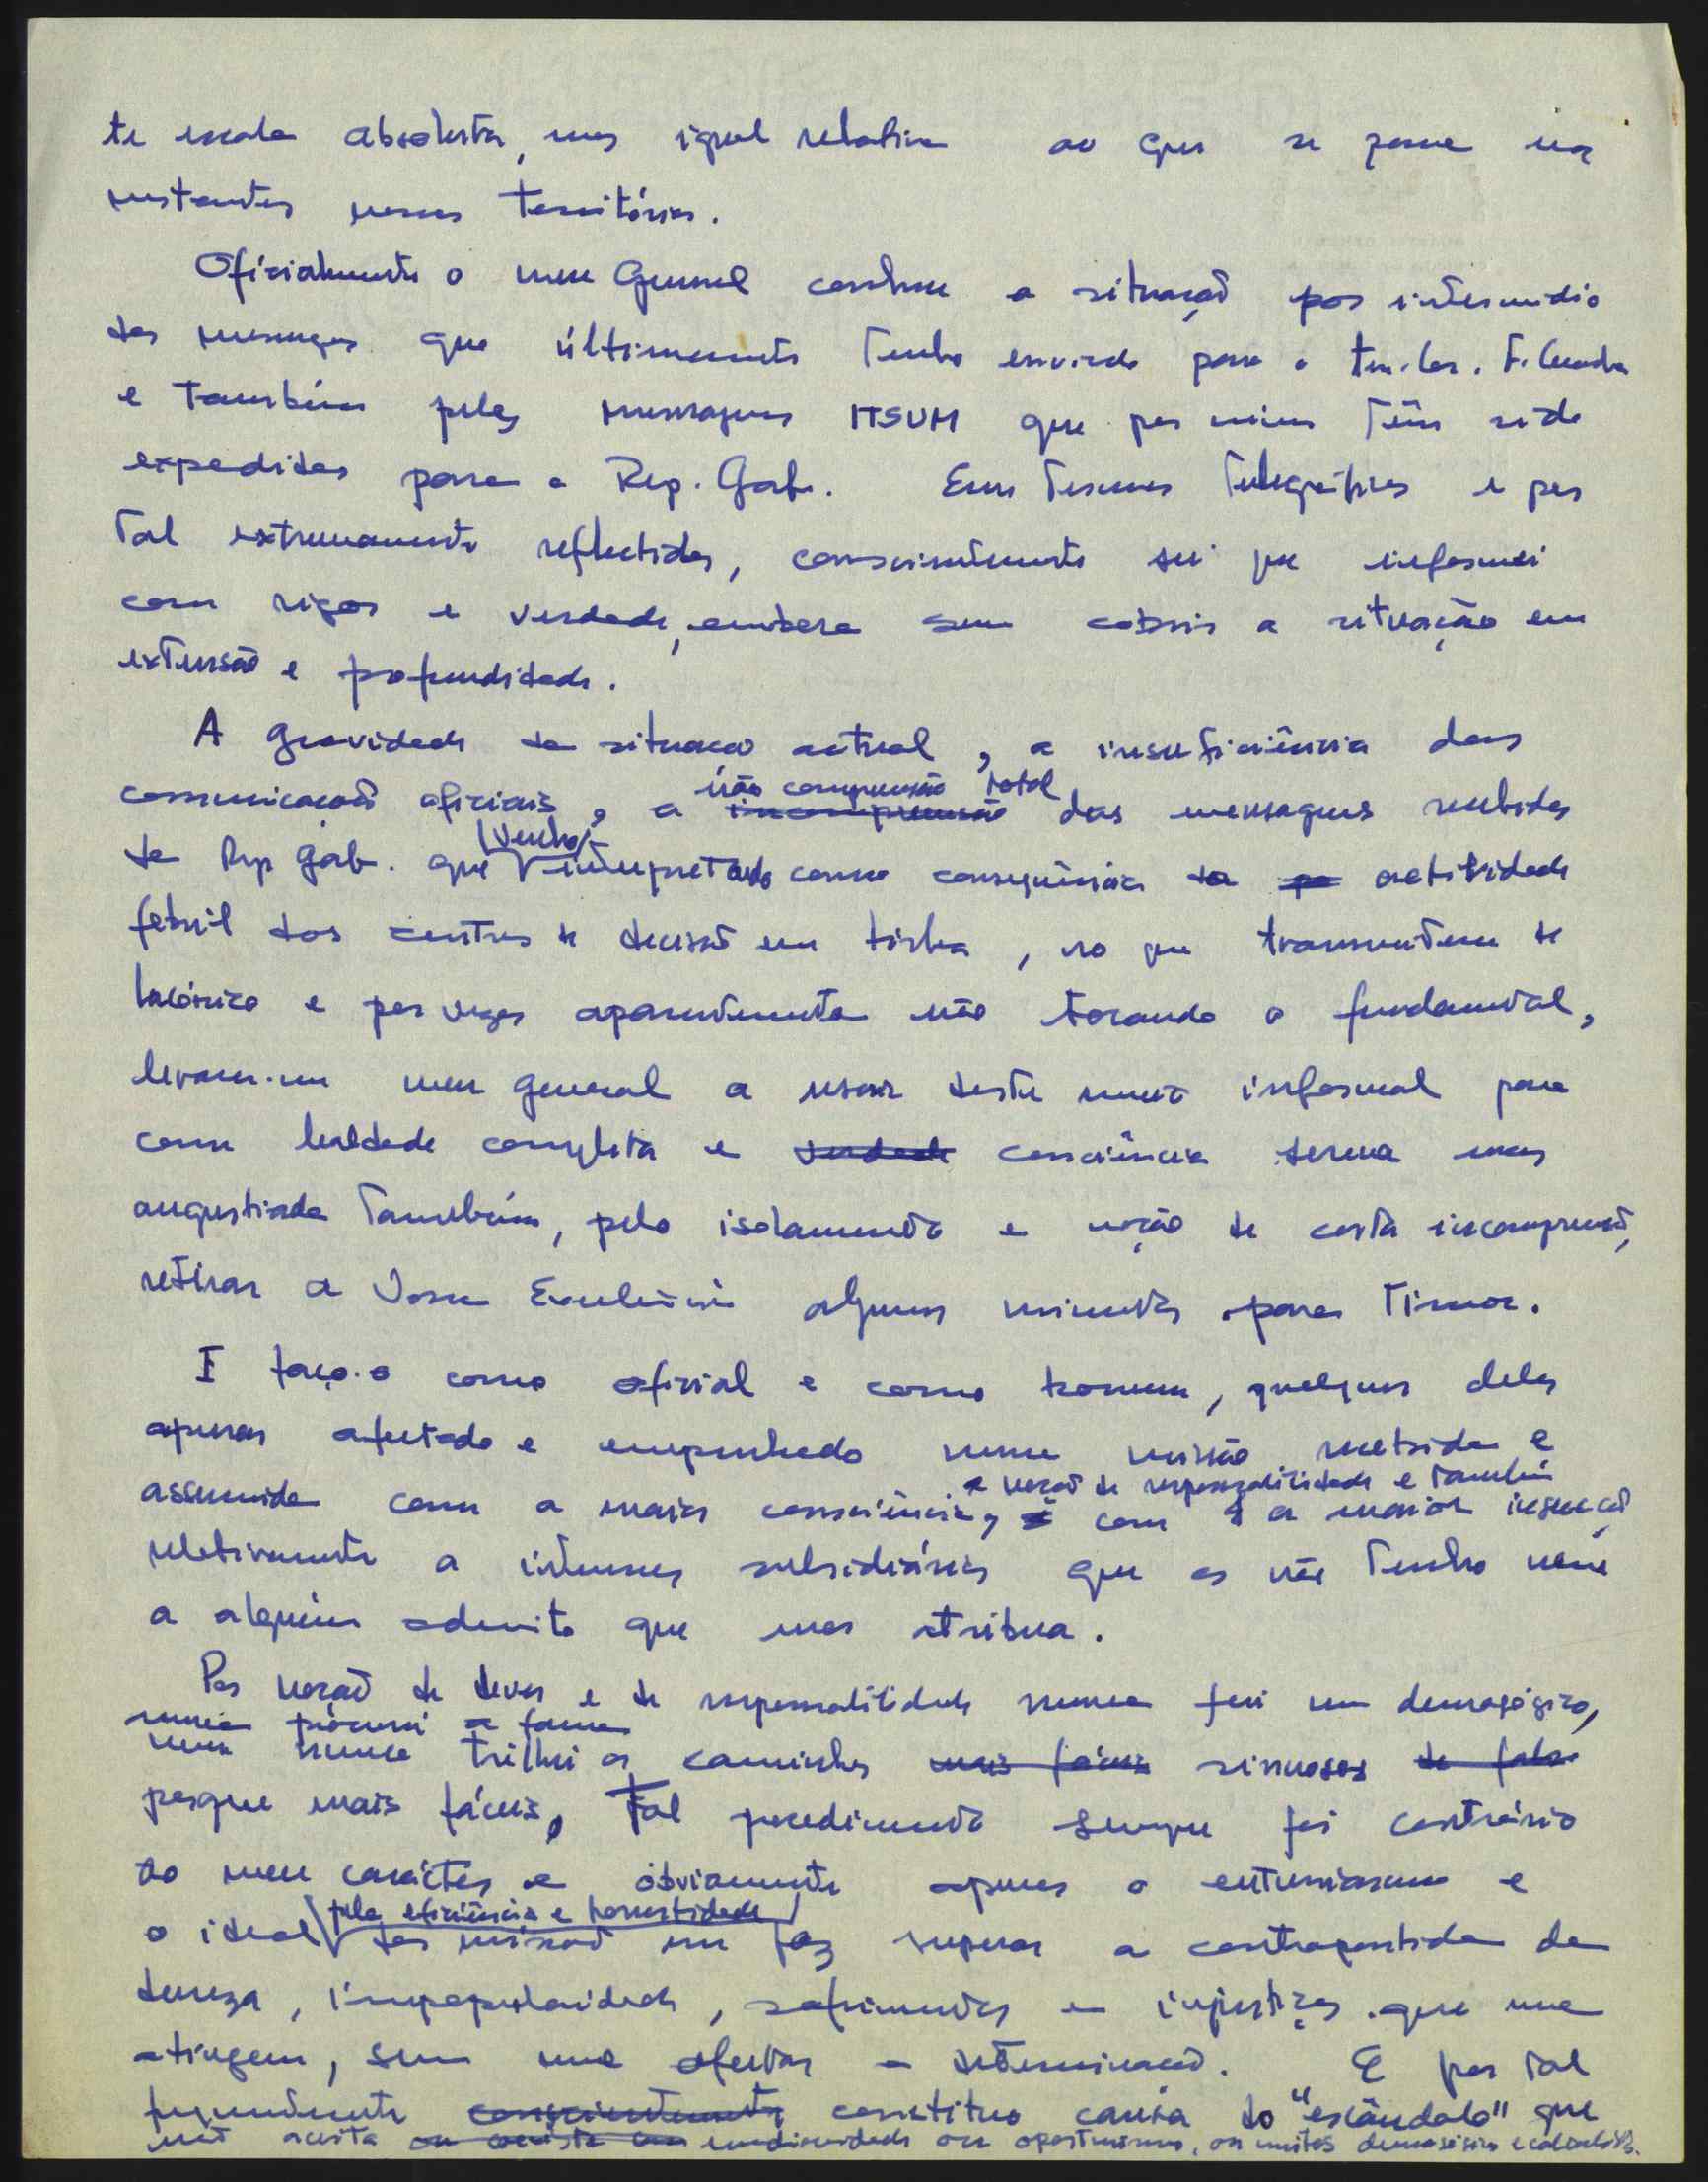 te escala absoluta, mas igual relativa ao que se passa nos
restantes nossos territórios.
Oficialmente o meu General conhece a situação por intermédio
das mensagens que últimamente tenho enviado para o Ten. Cor. F. Cunha
e também pelas mensagens ITSUM que por mim têm sido
expedidas para a Rep. Gab. Em termos telegráficos e por
tal extremamente reflectidos, conscientemente sei que informei
com rigor e verdade, embora sem cobrir a situação em
extensão e profundidade.
A gravidade da situação actual, a insuficiência das
comunicações oficiais, a não compreensão total incompreensão das mensagens recebidas
da Rep Gab. que venho interpretando como consequência da actividade
febril dos centros de decisão em Lisboa, no que transmitem de
lacónico e por vezes aparentemente não tocando o fundamental,
levaram-me meu general a usar deste meio informal para
com lealdade completa e verdade consciência serena mas
angustiada também, pelo isolamento e noção de certa incompreensão,
retirar a Vossa Excelência alguns minutos para Timor.
E faço-o como oficial e como homem, qualquer deles
apenas afectado e empenhado numa missão recebida e
assumida com a maior consciência, e noção de responsabilidade e também com a maior isenção
relativamente a interesses subsidiários que os não tenho nem
a alguém admito que mos atribua.
Por noção de dever e de responsabilidade nunca fui um demagógico,
nunca procurei a fama
nem nunca trilhei os caminhos mais fáceis sinuosos
porque mais fáceis, Tal procedimento sempre foi contrário
ao meu carácter e obviamente apenas o entusiasmo e
o ideal pela eficiência e honestidade das missões me faz superar a contrapartida da
dureza, impopularidade, sofrimentos e injustiças que me
atingem, sem me afectar a determinação. E por tal
procedimento conscientemente constituo causa do "escândalo" que
não aceita mediocridade ou oportunismo, ou muitos demagógicos